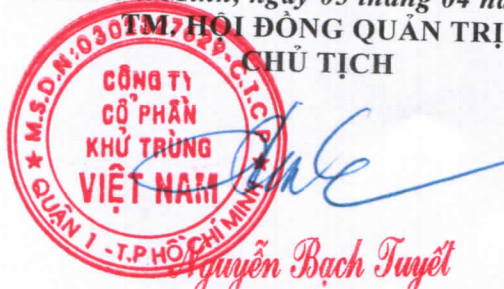 ngày 05 tháng 04
TM. HỘI ĐỒNG QUẢN TRỊ
CHỦ TỊCH
M.S.D.N:030 -C.T.C.P
CÔNG TY
CỔ PHẦN
KHỬ TRÙNG
VIỆT NAM
QUẬN 1 - T.P HỒ CHÍ MINH
Nguyễn Bạch Tuyết